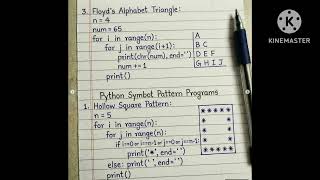 3. Floyd's Alphabet Triangle:
n = 4
num = 65
for i in range(n):
for j in range(i+1):
print(chr(num), end=' ')
num += 1
print()
A
B C
D E F
G H I J
Python Symbol Pattern Programs
1. Hollow Square Pattern:
n = 5
for i in range(n):
for j in range(n):
if i==0 or i==n-1 or j==0 or j==n-1:
print('*', end=' ')
else: print(' ', end=' ')
print()
* * * * *
* *
* *
* *
* * * * *
KINEMASTER